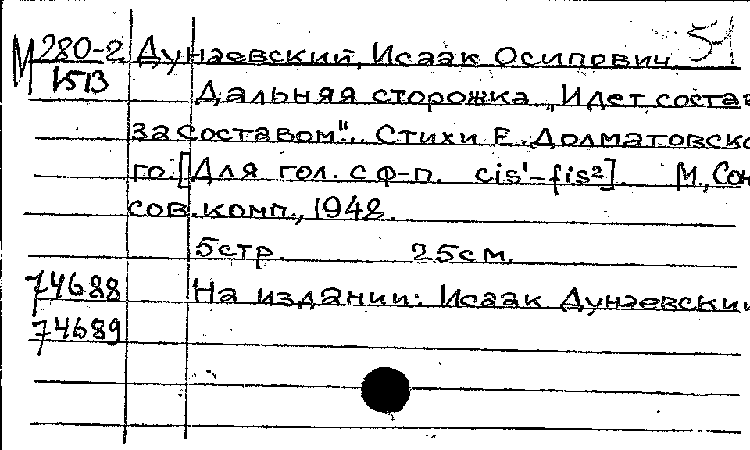 М 280-2 Дунаевский, Исаак Осипович 51
1513 Дальняя сторожка „Идет состав
за составом“. Стихи Е. Долматовско
го. [Для гол. с ф-п. cis¹-fis²]. М., Сою
сов. комп., 1948.
5 стр. 25 см.
74688 На издании: Исаак Дунаевский
74689